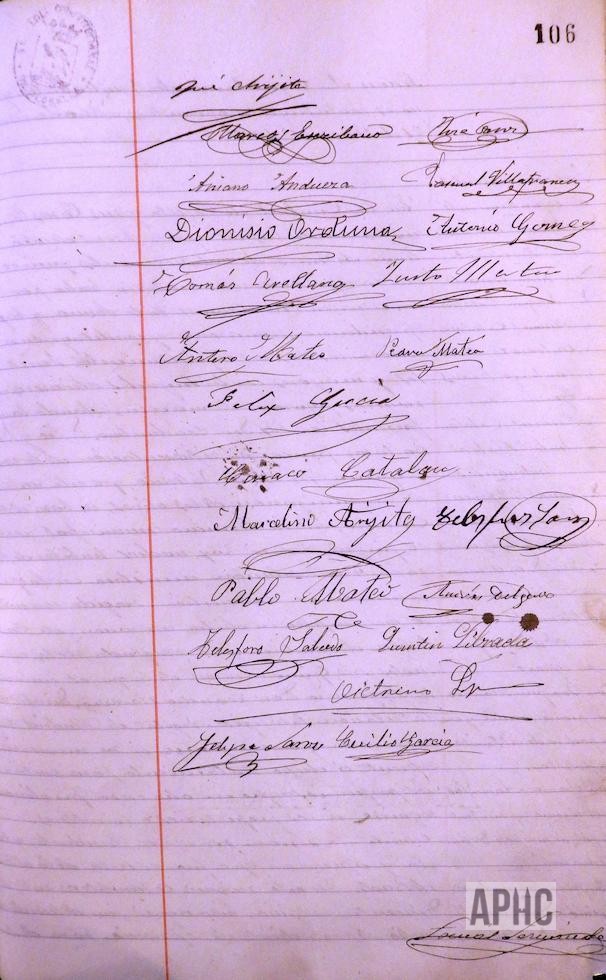 106
José Arijita
Marcos Escribano José Sanz
Aniano Andueza Manuel Villafranca
Dionisio Orduna Antonio Gomez
Tomás Orellana Justo Martin
Antero Mateo Pedro Mateo
Felix Garcia
Ciriaco Catalan
Marcelino Arijita Telesforo Sanz
Pablo Mateo Andrés Delgado
Telesforo Salcedo Quintin Librada
Victorino
Felipe Cecilio Garcia
APHC